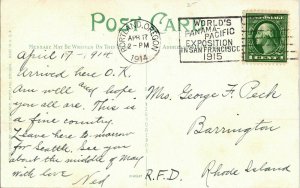 POST CARD
PORTLAND, OREGON
APR 17
2-PM
1914
WORLD'S
PANAMA PACIFIC
EXPOSITION
IN SAN FRANCISCO
1915
1 CENT 1
April 17 - 1914
Arrived here O.K.
Am well and hope
you all are. This is
a fine country
I leave here to morrow
for Seattle. See you
about the middle of May
with love
Ned
Mrs. George F. Peck
Barrington
R.F.D. Rhode Island